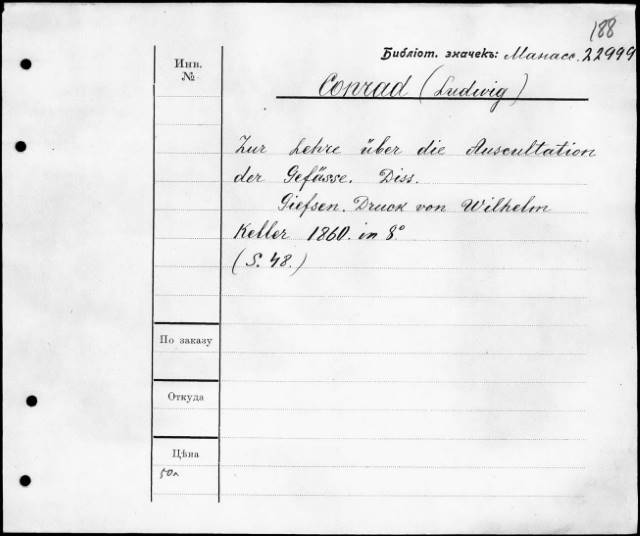 188
Библіот. значекъ: Манасс. 22999
Инв.
№
Conrad (Ludwig)
Zur Lehre über die Auscultation
der Gefässe. Diss.
Giefsen. Druck von Wilhelm
Keller 1860. in 8°
(S. 48.)
По заказу
Откуда
Цѣна